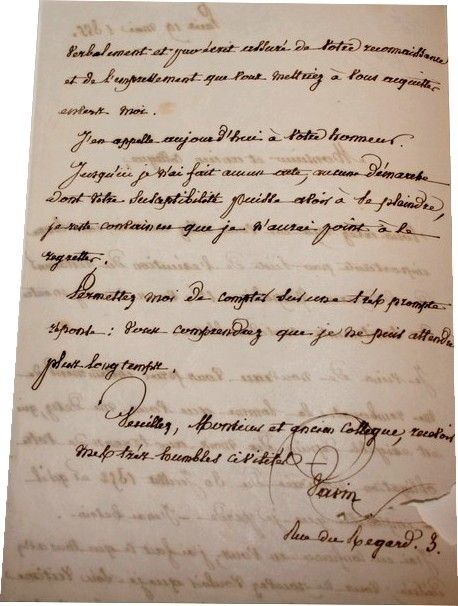 verbalement et par écrit assuré de votre reconnaissance
et de l'empressement que vous mettriez à vous acquitter
envers moi.
J'en appelle aujourd'hui à votre honneur.
Jusqu'ici je n'ai fait aucun acte, aucune démarche
dont votre susceptibilité puisse avoir à se plaindre,
je reste convaincu que je n'aurai point à le
regretter.
Permettez moi de compter sur une très prompte
réponse : vous comprendrez que je ne puis attendre
plus longtemps.
Veuillez, Monsieur et ancien collègue, recevoir
mes très humbles civilités
Rue du Regard. 3.